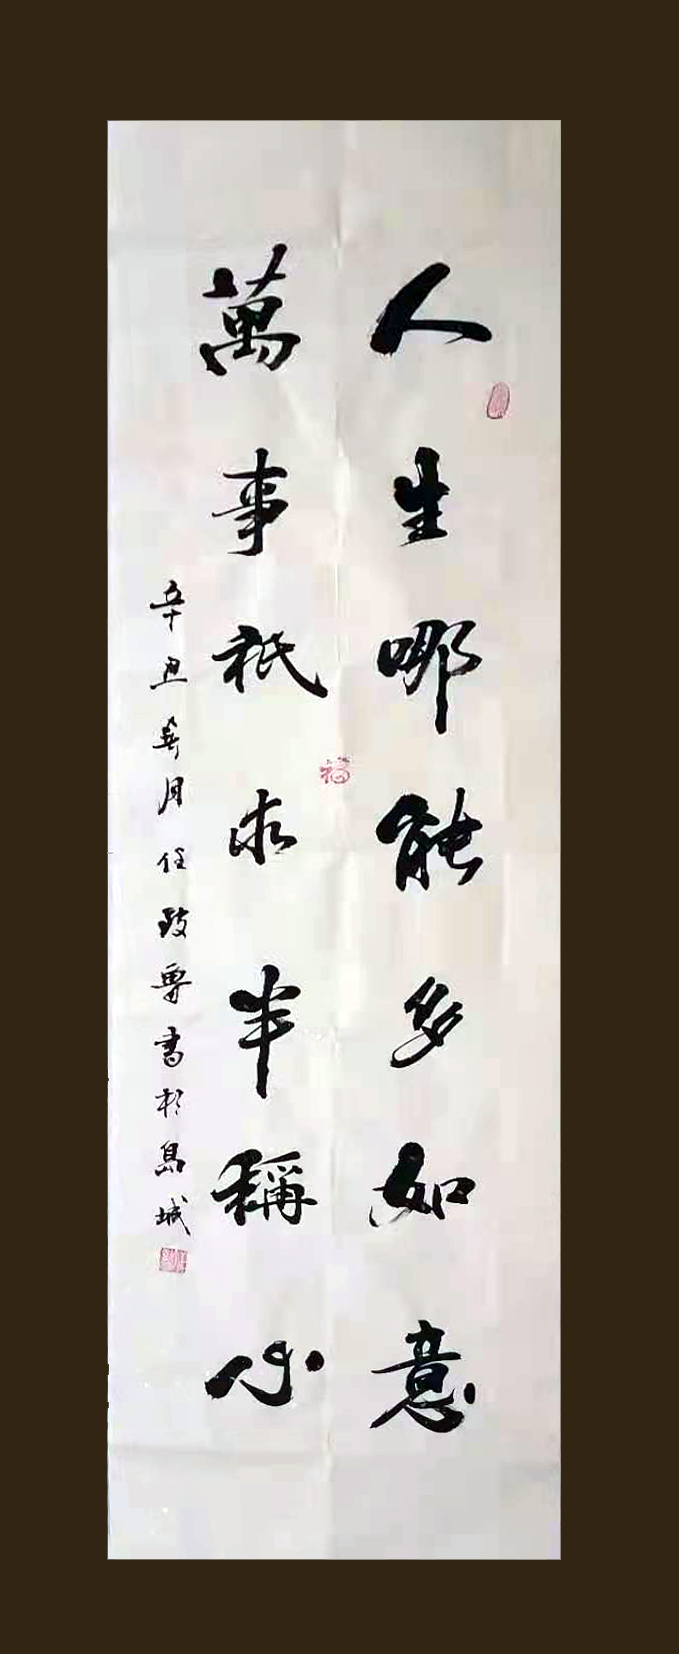 人生哪能多如意
萬事祇求半稱心
辛丑春月任政專書於島城
福